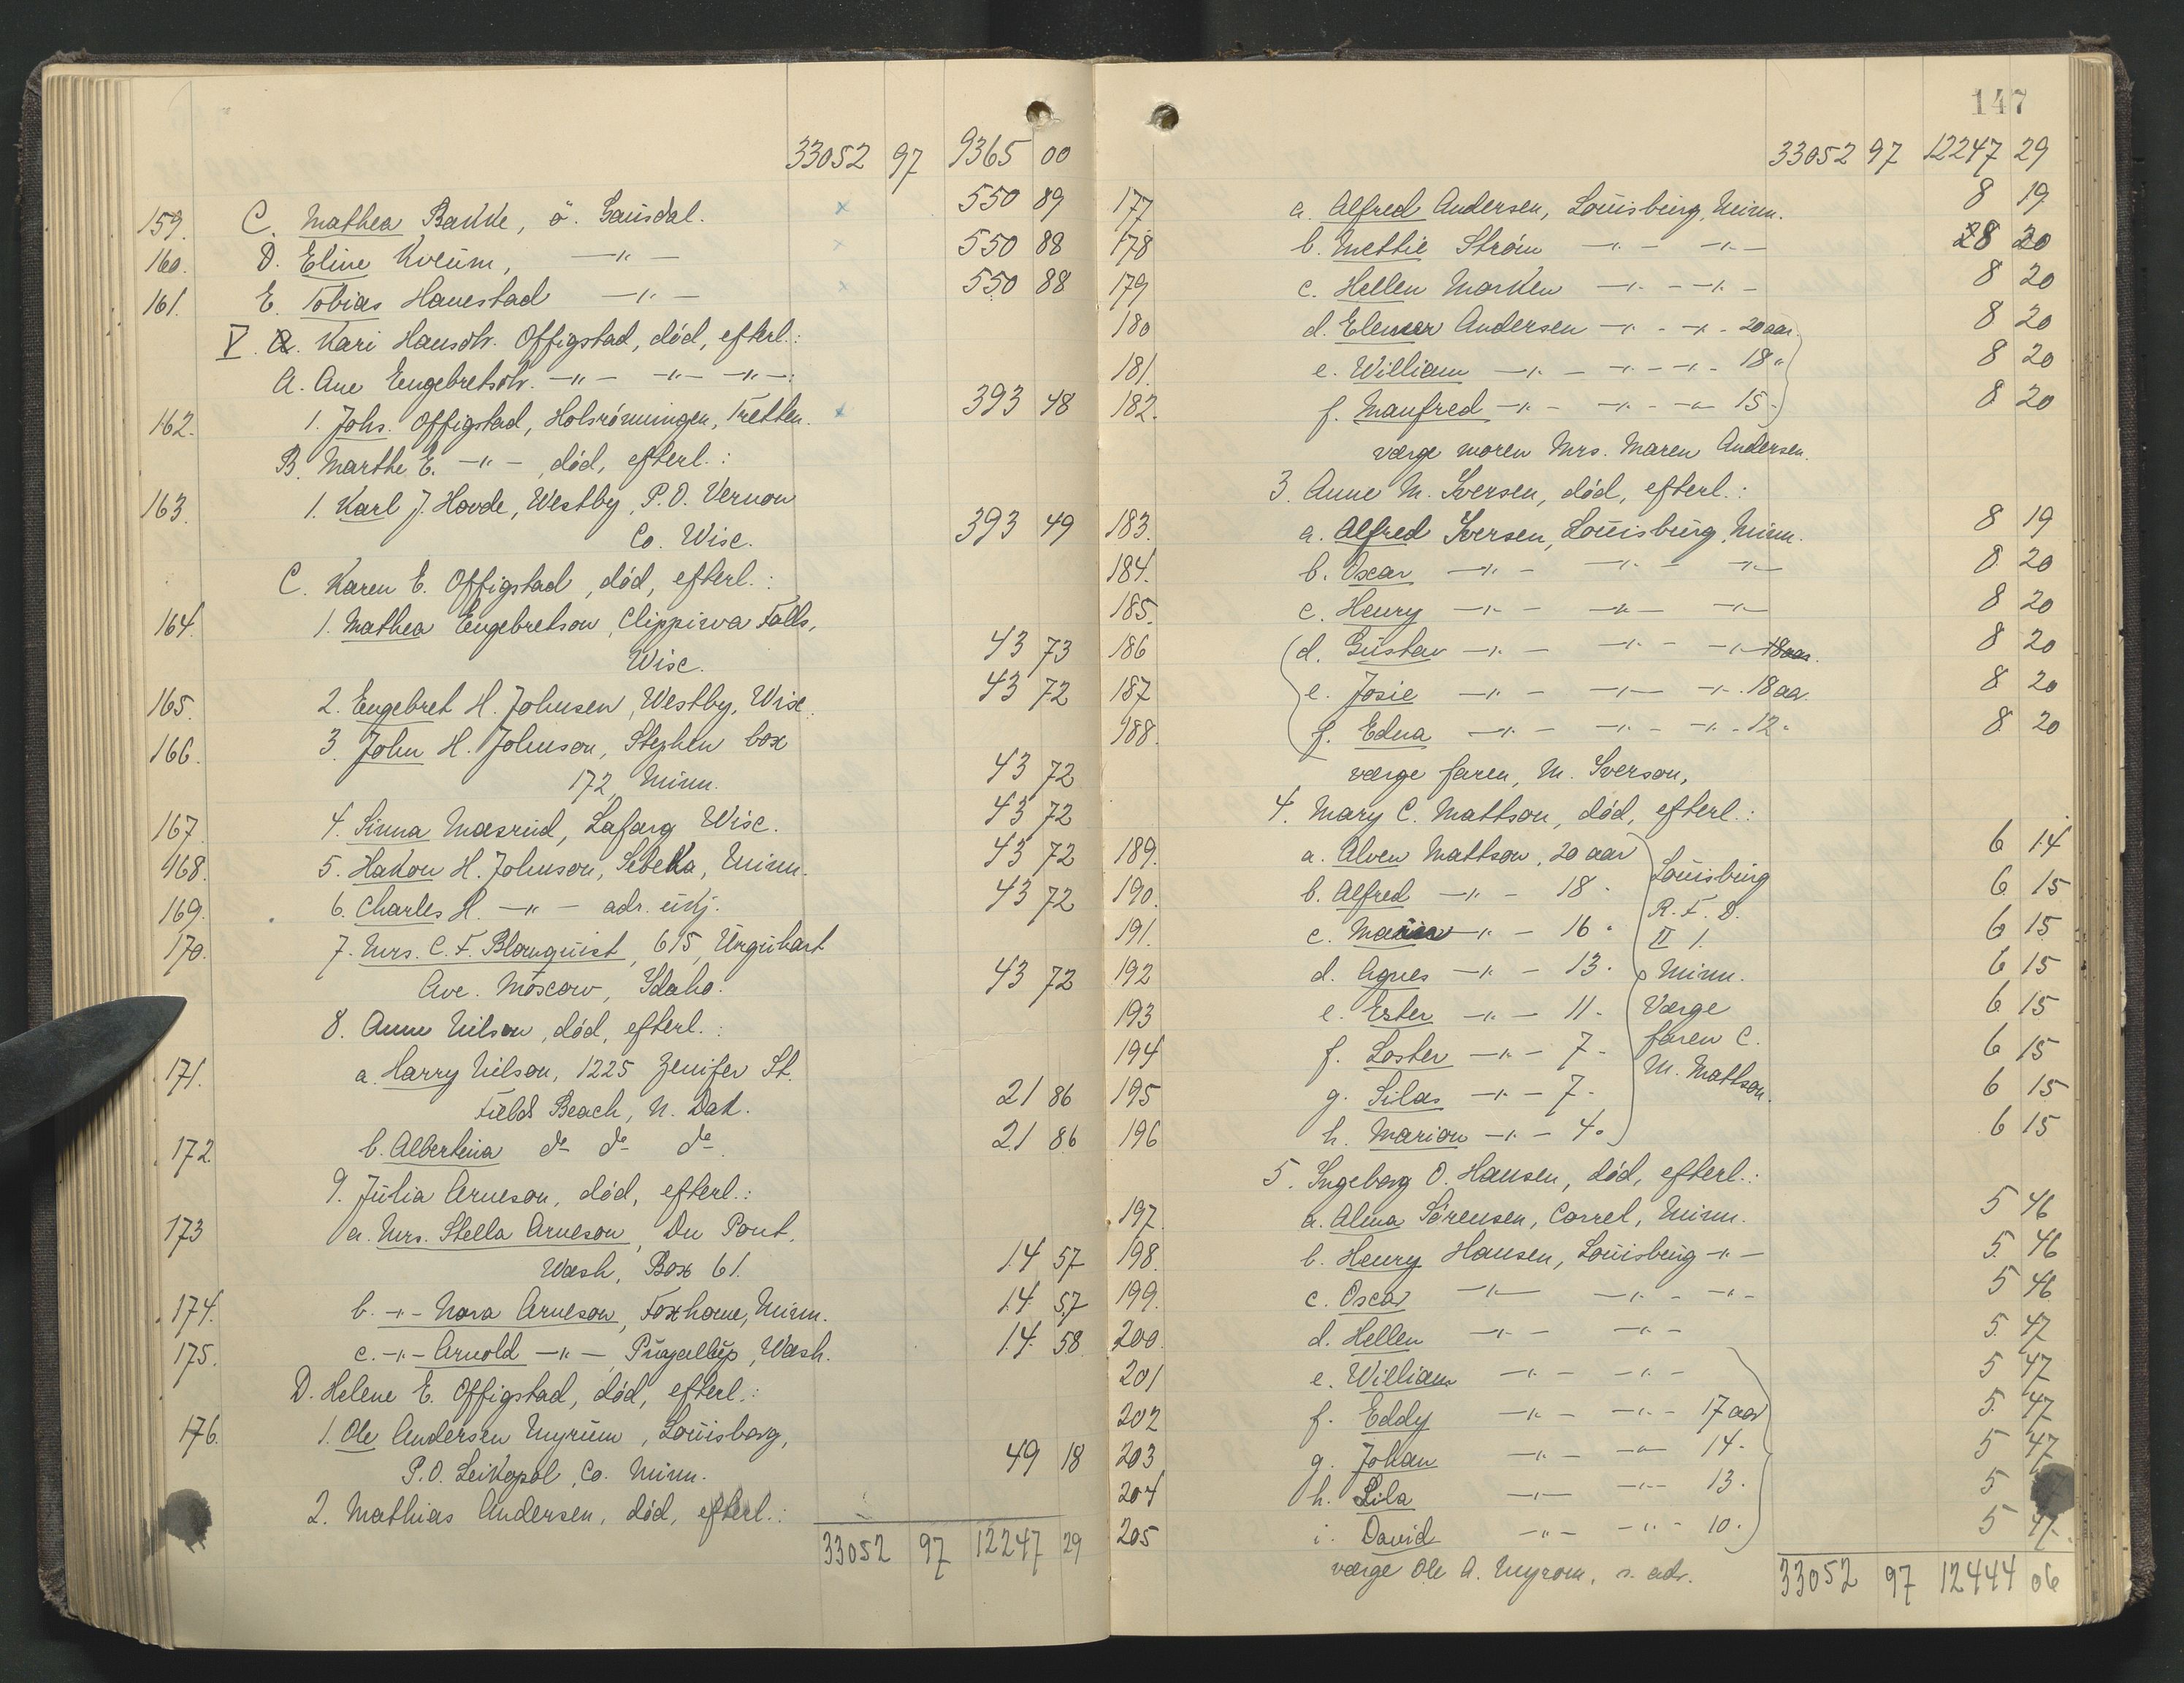 33052 97 9365 00
159. C. Mathea Bakke, ö. Gausdal. x 550 89
160. D. Eline Kveum, —"— x 550 88
161. E. Tobias Hauestad —"— x 550 88
V. Kari Hansdtr. Offigstad, död, efterl.:
A. Ane Engebretsdtr. —"— —"— —"—:
162. 1. Johs. Offigstad, Holsrönningen, Tretten. x 393 48
B. Marthe E. —"—, död, efterl.:
163. 1. Karl J. Hovde, Westby, P.O. Vernon
Co. Wisc. 393 49
C. Karen E. Offigstad, död, efterl.:
164. 1. Mathea Engebretson, Clippiwa Falls,
Wisc. 43 73
165. 2. Engebret H. Johnsen, Westby, Wisc. 43 72
166. 3. John H. Johnson, Stephen box
172, Minn. 43 72
167. 4. Sinna Maesrud, Lafarg Wisc. 43 72
168. 5. Hakon H. Johnson, Sebeka, Minn. 43 72
169. 6. Charles H. —"— adr. ukj. 43 72
170. 7. Mrs. C. F. Blomquist, 615, Urquhart
Ave. Moscow, Idaho. 43 72
8. Anne Nilson, död, efterl.:
171. a. Harry Nilson, 1225 Zenifer St.
Fields Beach, N. Dak. 21 86
172. b. Albertina do do do 21 86
9. Julia Arneson, död, efterl.:
173 a. Mrs. Stella Arneson, Du Pont,
Wash, Box 61. 14 57
174. b. —"— Nora Arneson, Foxhome, Minn. 14 57
175. c. —"— Arnold —"—, Puyallup, Wash. 14 58
D. Helene E. Offigstad, död, efterl.:
176. 1. Ole Andersen Myrum, Louisborg,
P.O. Leikopol, Co. Minn. 49 18
2. Mathias Andersen, död, efterl.:
33052 97 12247 29
147
33052 97 12247 29
177 a. Alfred Andersen, Louisburg, Minn. 8 19
178 b. Mettie Ström —"— —"— 8 20
179 c. Hellen Marken —"— —"— 8 20
180 d. Elenor Andersen —"— —"— 20 aar. 8 20
181. e. William —"— —"— —"— 18 " 8 20
182. f. Manfred —"— —"— —"— 15 " 8 20
værge moren Mrs. Maren Andersen.
3. Anne M. Iversen, död, efterl.:
183. a. Alfred Iversen, Louisburg, Minn. 8 19
184. b. Oscar —"— —"— —"— 8 20
185. c. Henry —"— —"— —"— 8 20
186 d. Gustav —"— —"— —"— 18 aar. 8 20
187 e. Josie —"— —"— —"— 18 aar. 8 20
188. f. Edna —"— —"— —"— 12 " 8 20
værge faren, M. Iverson,
4. Mary C. Mattson, död, efterl.:
189. a. Alven Mattson, 20 aar 6 14
190. b. Alfred —"— 18 " Louisburg 6 15
191. c. —"— 16 " R. F. D. II 1. 6 15
192 d. Agnes —"— 13 " Minn. 6 15
193 e. Ester —"— 11 " Værge 6 15
194 f. Loster —"— 7 " faren C. 6 15
195 g. Silas —"— 7 " M. Mattson. 6 15
196 h. Marion —"— 4 " 6 15
5. Ingeborg O. Hansen, död, efterl.:
197. a. Alma Sörensen, Correl, Minn. 5 46
198. b. Henry Hansen, Louisburg —"— 5 46
199. c. Oscar —"— —"— —"— 5 46
200. d. Hellen —"— —"— 5 47
201 e. William —"— —"— 5 47
202 f. Eddy —"— —"— 17 aar 5 47
203 g. Johan —"— —"— 14 " 5 47
204 h. Lila —"— —"— 13 " 5
205 i. David —"— —"— 10 " 5 47
værge Ole A. Myrom, s. adr.
33052 97 12444 06